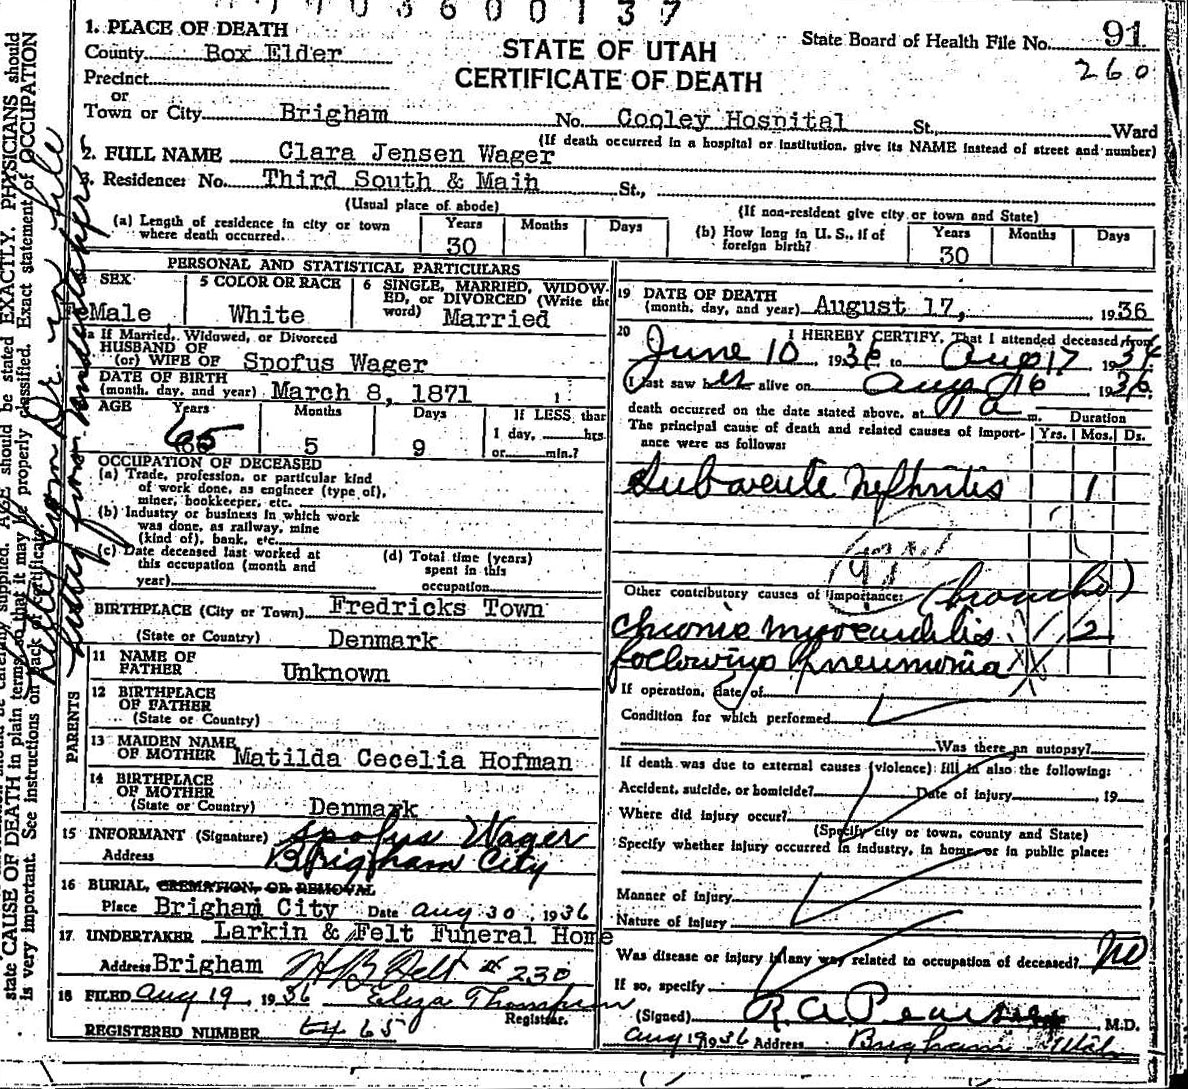 7 0 3 6 0 0 1 3 7
1. PLACE OF DEATH
County Box Elder
STATE OF UTAH
CERTIFICATE OF DEATH
State Board of Health File No. 91
260
Precinct
or
Town or City Brigham No. Cooley Hospital St., Ward
(If death occurred in a hospital or institution, give its NAME instead of street and number)
2. FULL NAME Clara Jensen Wager
3. Residence: No. Third South & Main St.,
(Usual place of abode) (If non-resident give city or town and State)
(a) Length of residence in city or town where death occurred. Years 30 Months Days
(b) How long in U. S., if of foreign birth? Years 30 Months Days
PERSONAL AND STATISTICAL PARTICULARS
SEX Male
5 COLOR OR RACE White
6 SINGLE, MARRIED, WIDOWED, or DIVORCED (Write the word) Married
If Married, Widowed, or Divorced
HUSBAND OF
(or) WIFE OF Spofus Wager
DATE OF BIRTH
(month, day, and year) March 8, 1871
AGE Years 65 Months 5 Days 9 If LESS than
1 day, hrs.
or min.?
OCCUPATION OF DECEASED
(a) Trade, profession, or particular kind
of work done, as engineer (type of),
miner, bookkeeper, etc.
(b) Industry or business in which work
was done, as railway, mine
(kind of), bank, etc.
(c) Date deceased last worked at
this occupation (month and
year)
(d) Total time (years)
spent in this
occupation
BIRTHPLACE (City or Town) Fredricks Town
(State or Country) Denmark
PARENTS
11 NAME OF
FATHER Unknown
12 BIRTHPLACE
OF FATHER
(State or Country)
13 MAIDEN NAME
OF MOTHER Matilda Cecelia Hofman
14 BIRTHPLACE
OF MOTHER
(State or Country) Denmark
15 INFORMANT (Signature) Spofus Wager
Address Brigham City
16 BURIAL, CREMATION, OR REMOVAL
Place Brigham City Date Aug 30, 1936
17 UNDERTAKER Larkin & Felt Funeral Home
Address Brigham 230
18 FILED Aug 19, 1936 Eliza Thompson
Registrar.
REGISTERED NUMBER 65
19 DATE OF DEATH
(month, day, and year) August 17, 1936
20 I HEREBY CERTIFY, That I attended deceased from
June 10 1936 to Aug 17 1936
I last saw her alive on Aug 16 1936
death occurred on the date stated above, at 1 a m. Duration
The principal cause of death and related causes of importance were as follows: Yrs. Mos. Ds.
Subacute Nephritis 1
Other contributory causes of importance: (broncho)
Chronic myocarditis 2
following Pneumonia
If operation, date of
Condition for which performed
Was there an autopsy?
If death was due to external causes (violence) fill in also the following:
Accident, suicide, or homicide? Date of injury , 19
Where did injury occur?
(Specify city or town, county and State)
Specify whether injury occurred in industry, in home, or in public place:
Manner of injury
Nature of injury
Was disease or injury in any way related to occupation of deceased? no
If so, specify
(Signed) M.D.
Aug 19 1936 Address Brigham Utah